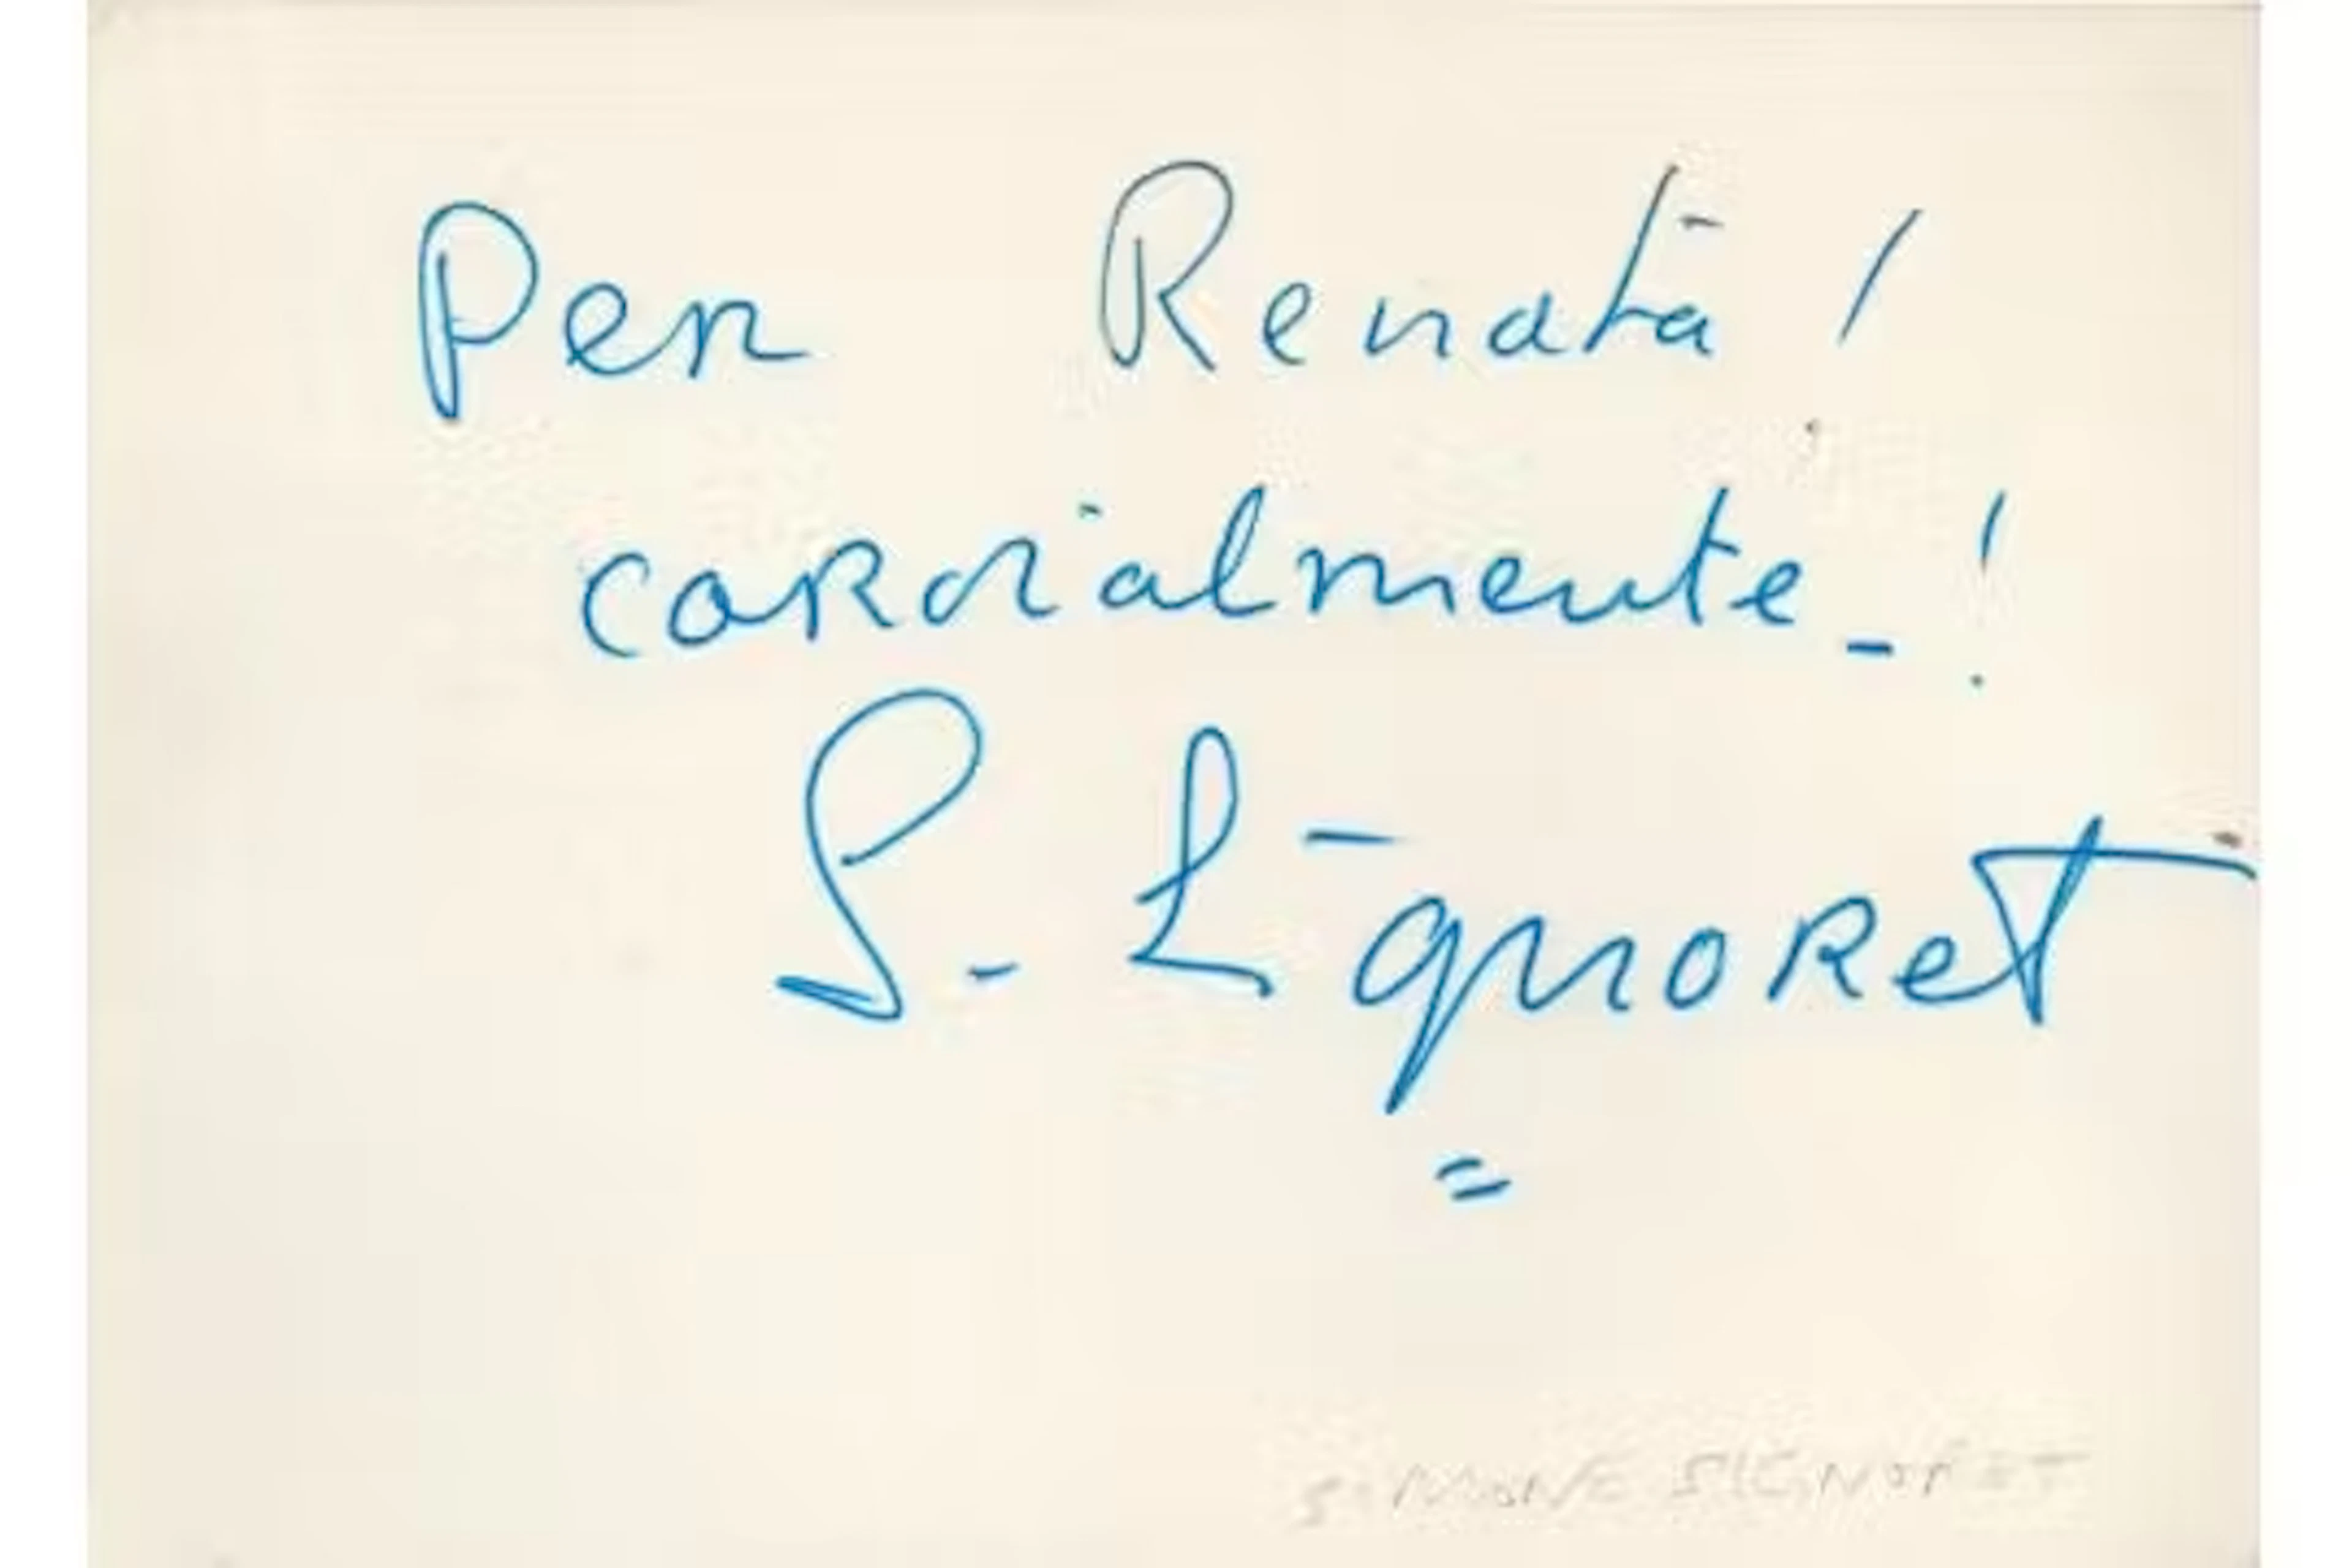 Per Renata!
cordialmente_!
S. Signoret
SIMONE SIGNORET